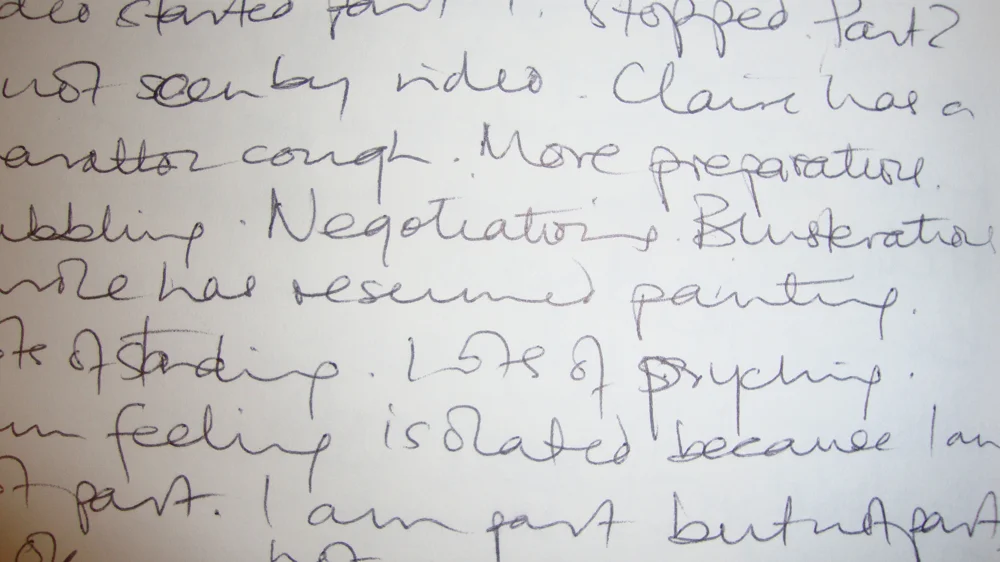 started part 1. Stopped. Part 2
not seen by video. Claire has a
cough. More preparation.
Negotiations.
has resumed painting.
of standing. Lots of psyching.
feeling isolated because I am
part. I am part but not part
not